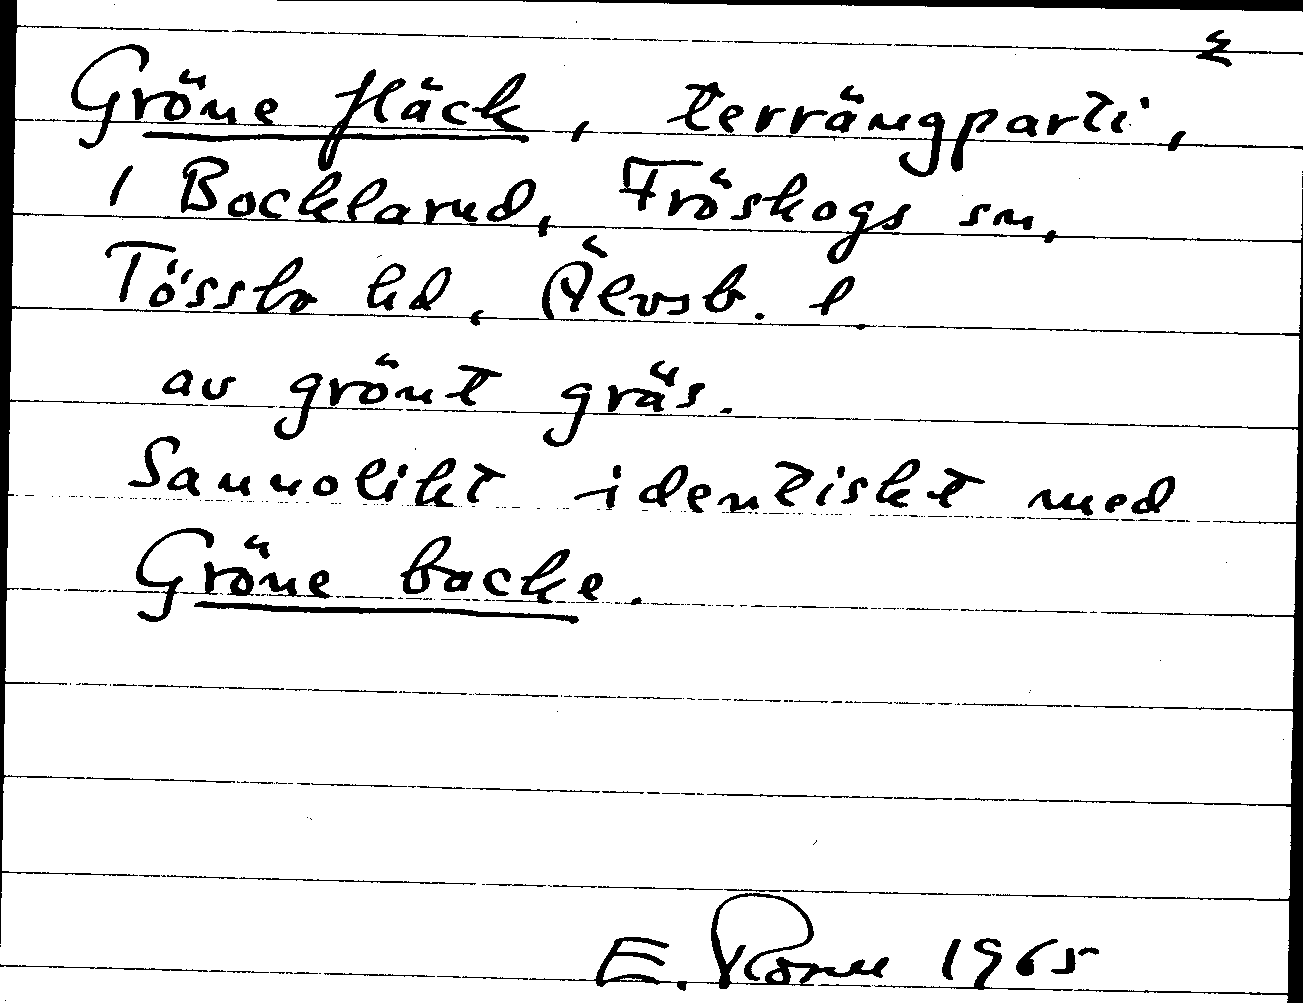 Gröne fläck, terrängparti,
i Bocklarud, Fröskogs sn,
Tössbo hd, Älvsb. l.
av grönt gräs.
Sannolikt identiskt med
Gröne backe.
E. 1965